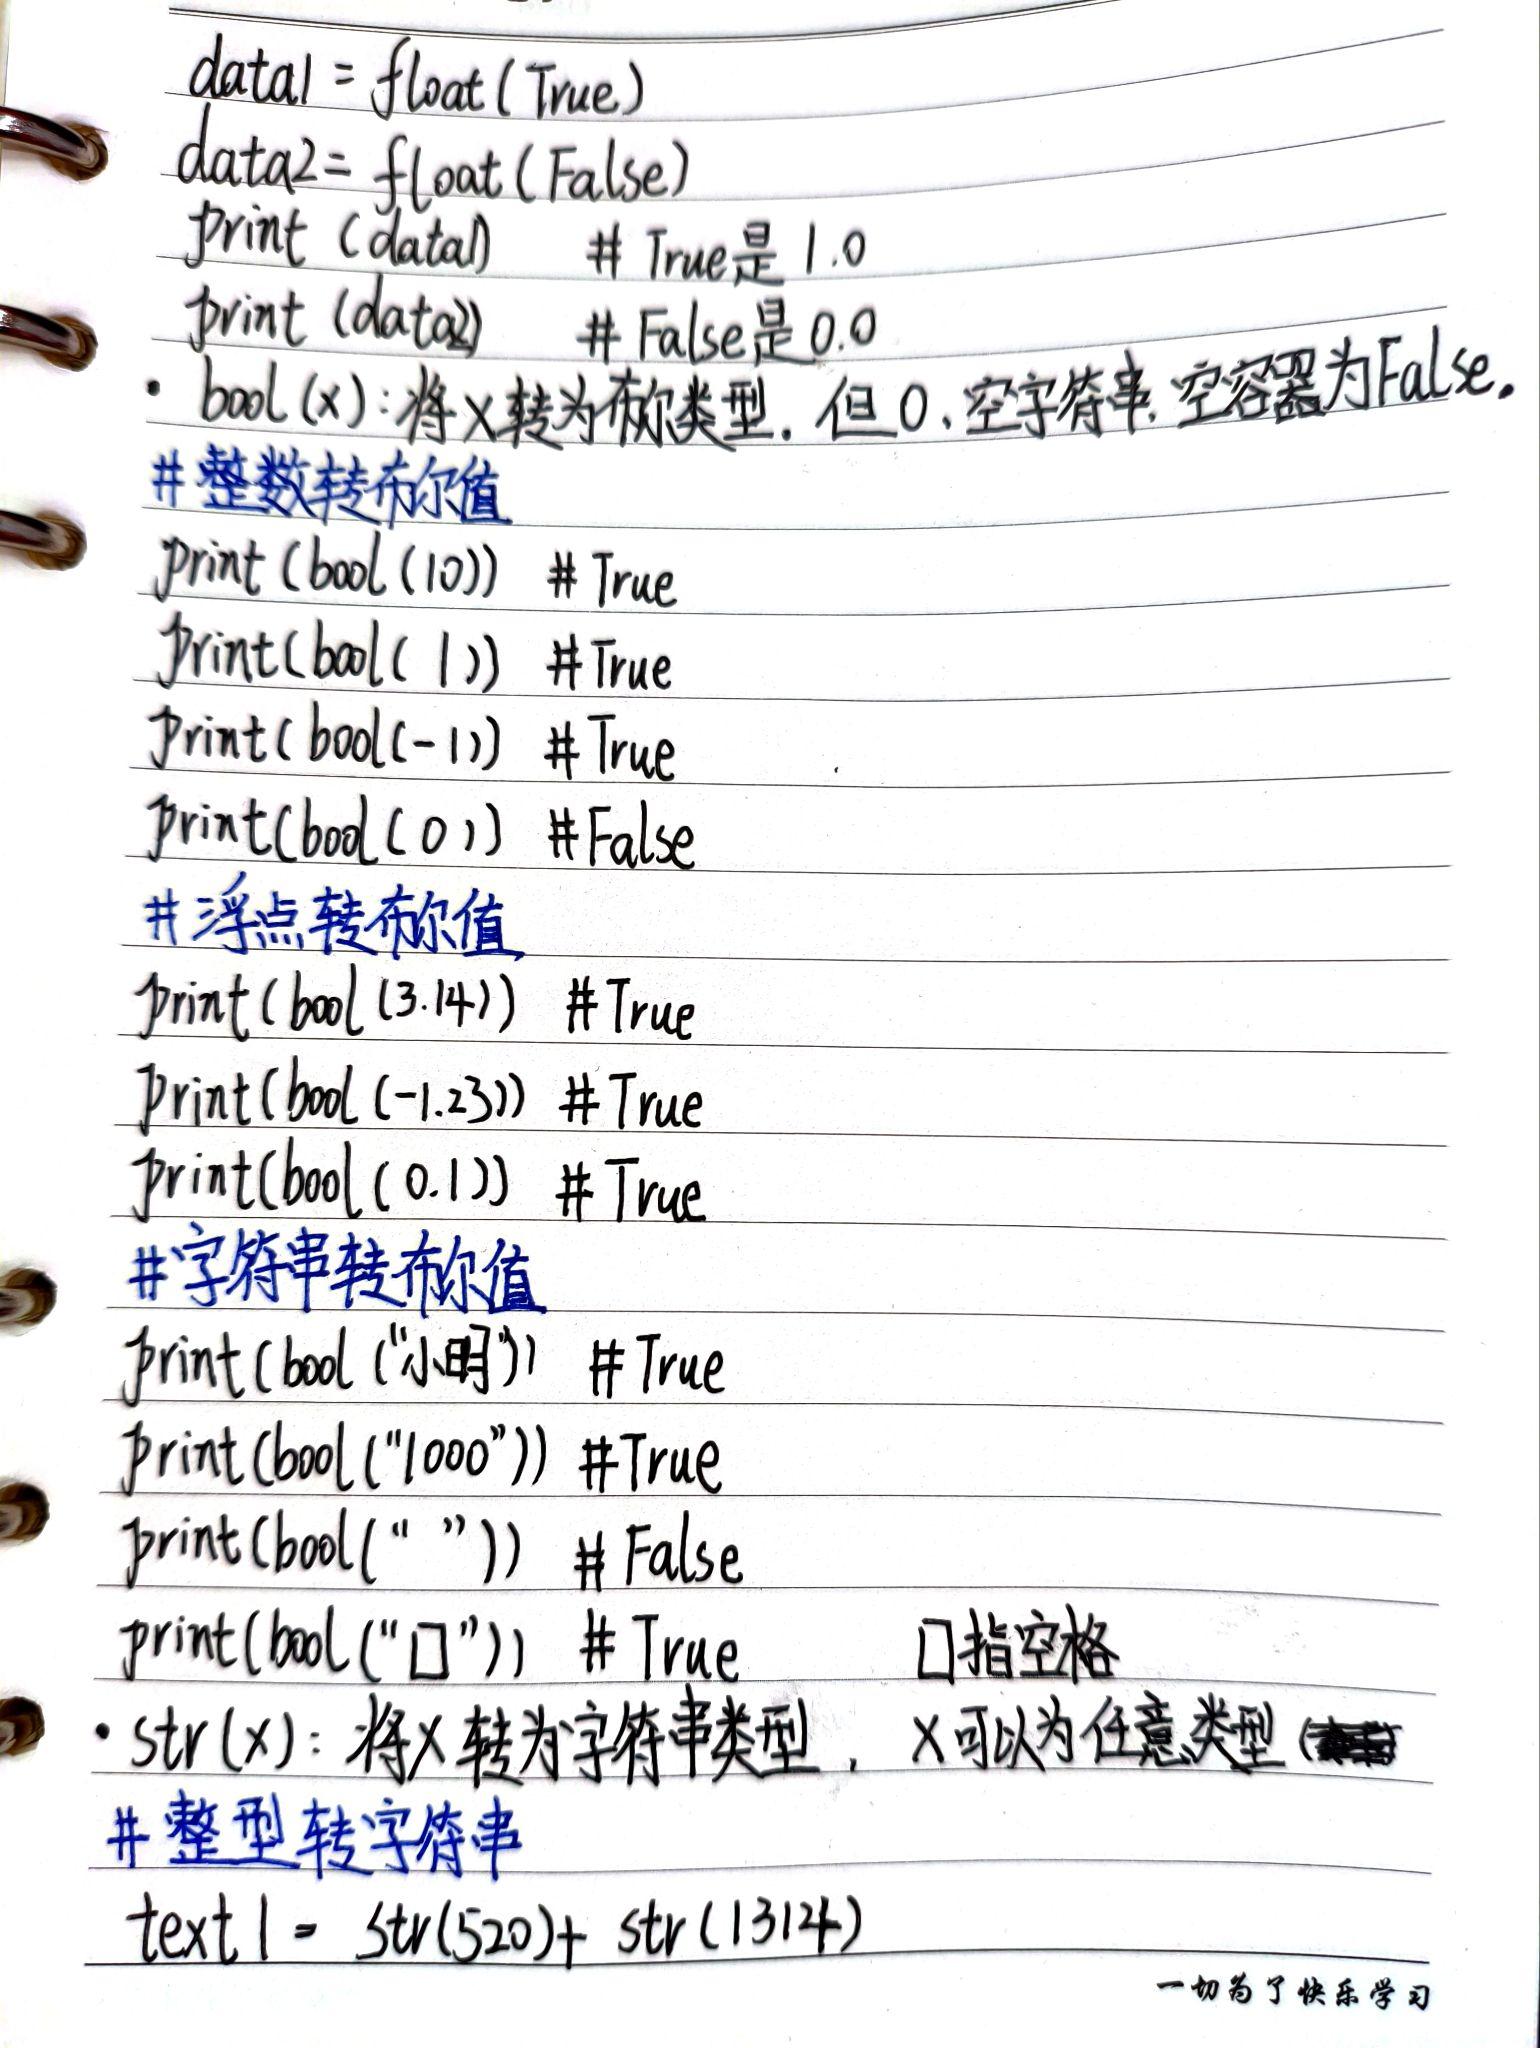 data1 = float(True)
data2 = float(False)
print (data1) # True是1.0
print (data2) # False是0.0
· bool(x):将x转为布尔类型. 但0、空字符串、空容器为False.
#整数转布尔值
print(bool(10)) #True
print(bool(1)) #True
print(bool(-1)) #True
print(bool(0)) #False
#浮点转布尔值
print(bool(3.14)) #True
print(bool(-1.23)) #True
print(bool(0.1)) #True
#字符串转布尔值
print(bool("小明")) #True
print(bool("1000")) #True
print(bool(" ")) #False
print(bool("口")) #True 口指空格
· str(x):将x转为字符串类型, x可以为任意类型(
#整型转字符串
text1 = str(520)+ str(1314)
一切为了快乐学习